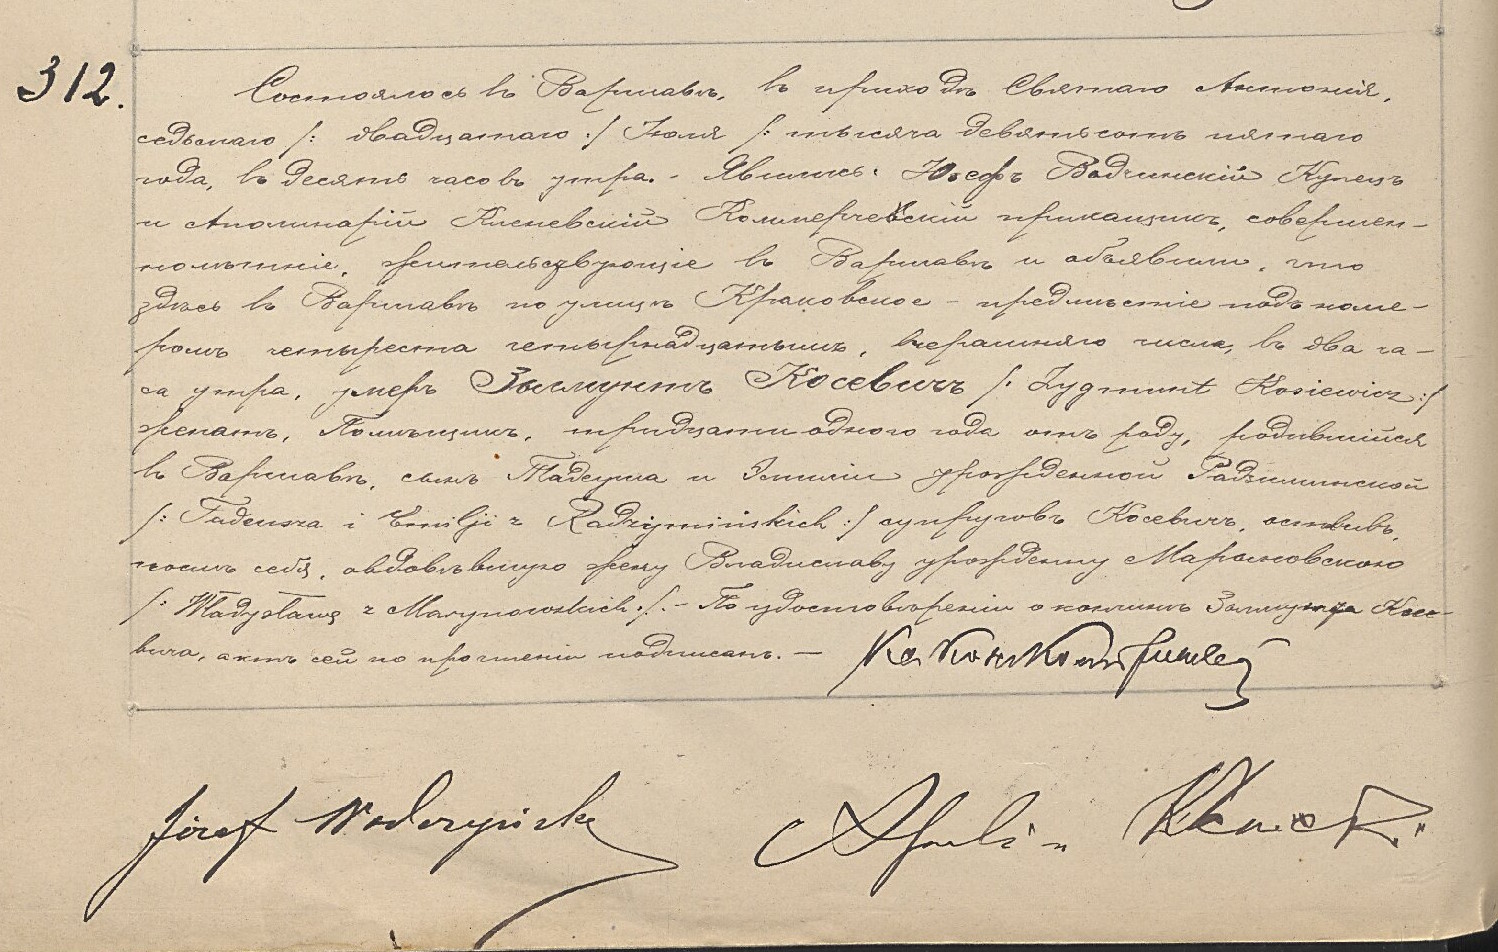 312.
Состоялось въ Варшавѣ, въ приходѣ Святаго Антонія,
седьмаго /: двадцатаго :/ Іюля /: тысяча девятьсотъ пятаго
года, въ десять часовъ утра. - Явились: Юсефъ Водчинскій Купецъ
и Аполинарій Кисневскій Коммерческій прикащикъ, совершен-
нолѣтніе, жительствующіе въ Варшавѣ и объявили, что
здѣсь въ Варшавѣ по улицѣ Краковское - предмѣстіе подъ номе-
ромъ четыреста четырнадцатымъ, вчерашняго числа, въ два ча-
са утра, умеръ Зыгмунтъ Косевичъ /: Zygmunt Kosiewicz :/
женатъ, Помѣщикъ, тридцати одного года отъ роду, родившійся
въ Варшавѣ, сынъ Тадеуша и Эмиліи урожденной Радзиминской
/: Tadeusza i Emilji z Radzymińskich :/ супруговъ Косевичъ, оставивъ
послѣ себя, овдовѣвшую жену Владиславу урожденну Марыновскою
/: Władysławę z Marynowskich :/. - По удостовѣреніи о кончинѣ Зыгмунта Косе-
вича, актъ сей по прочтеніи подписанъ. —
Józef Wodczyński